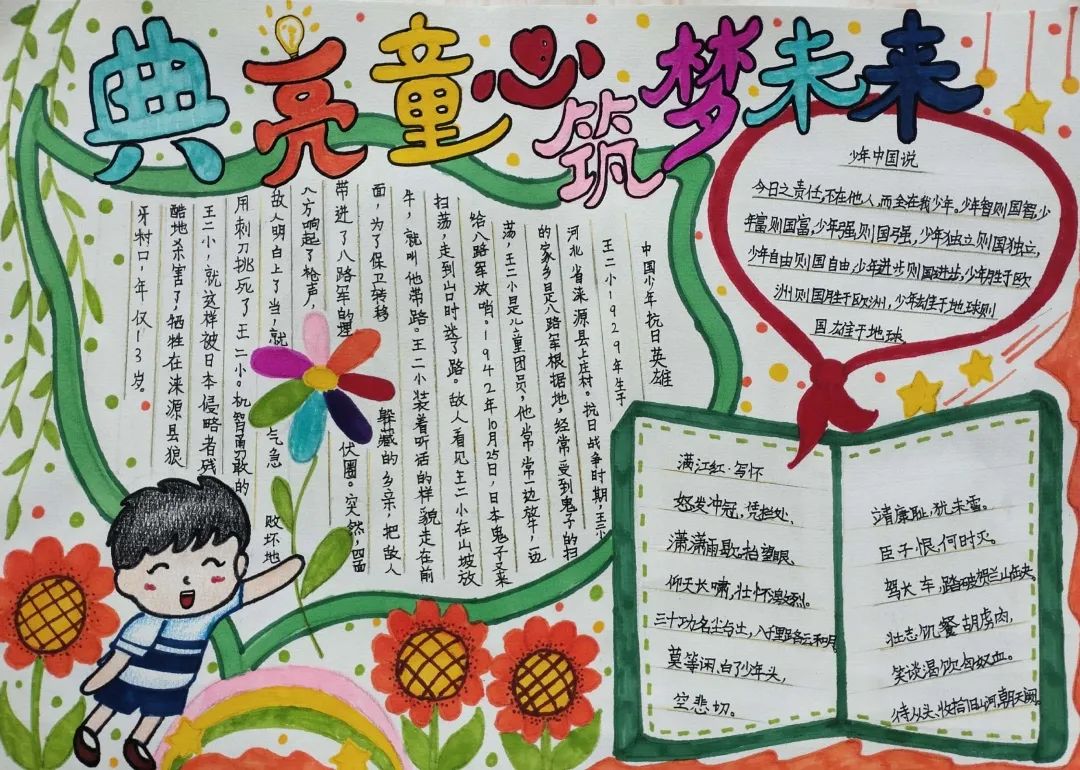 典亮童心筑梦未来
中国少年抗日英雄
王二小1929年生于
河北省涞源县上庄村。抗日战争时期,王二小
的家乡是八路军根据地,经常受到鬼子的扫
荡,王二小是儿童团员,他常常一边放牛,一边
给八路军放哨。1942年10月25日,日本鬼子又来
扫荡,走到山口时迷了路。敌人看见王二小在山坡放
牛,就叫他带路。王二小装着听话的样貌走在前
面,为了保卫转移躲藏的乡亲,把敌人
带进了八路军的埋伏圈。突然,四面
八方响起了枪声,
敌人明白上了当,就气急败坏地
用刺刀挑死了王二小。机智勇敢的
王二小,就这样被日本侵略者残
酷地杀害了,牺牲在涞源县狼
牙村口,年仅13岁。
少年中国说
今日之责任,不在他人,而全在我少年。少年智则国智,少
年富则国富,少年强则国强,少年独立则国独立,
少年自由则国自由,少年进步则国进步,少年胜于欧
洲则国胜于欧洲,少年雄于地球则
国雄于地球
满江红·写怀
怒发冲冠,凭栏处,
潇潇雨歇,抬望眼,
仰天长啸,壮怀激烈。
三十功名尘与土,八千里路云和月
莫等闲,白了少年头,
空悲切。
靖康耻,犹未雪。
臣子恨,何时灭。
驾长车,踏破贺兰山缺。
壮志饥餐胡虏肉,
笑谈渴饮匈奴血。
待从头、收拾旧山河,朝天阙。